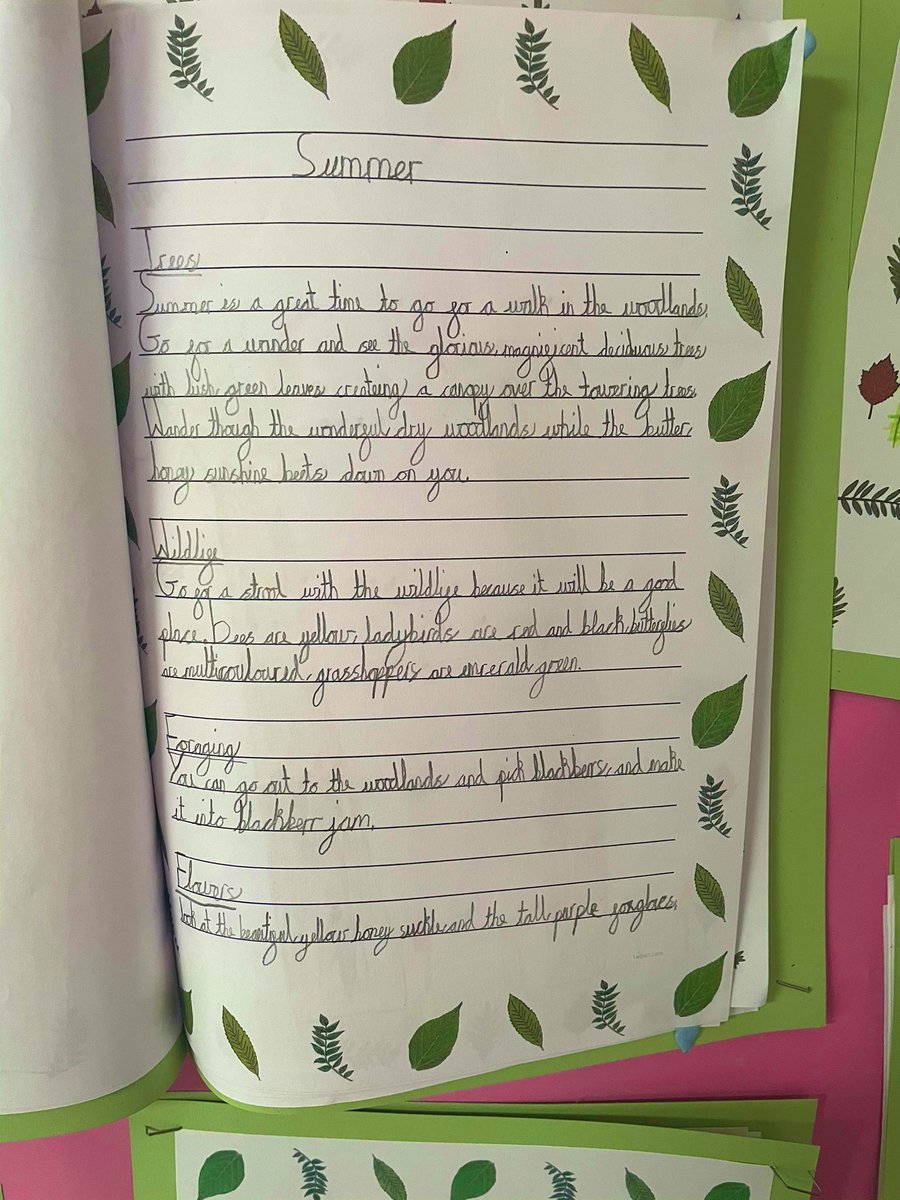 Summer
Trees
Summer is a great time to go for a walk in the woodlands.
Go for a wander and see the glorious, magnificent deciduous trees
with lush green leaves createing a canopy over the towering trees.
Wander though the wonderful dry woodlands while the butter
honey sunshine beets down on you.
Wildlife
Go for a strool with the wildlife because it will be a good
place. Bees are yellow, ladybirds are red and black, butterflies
are multicouloured, grasshoppers are emerald green.
Foraging
You can go out to the woodlands and pick blackberrs, and make
it into blackberr jam.
Flowors
look at the beautiful yellow honey suckle and the tall purple foxgloves.